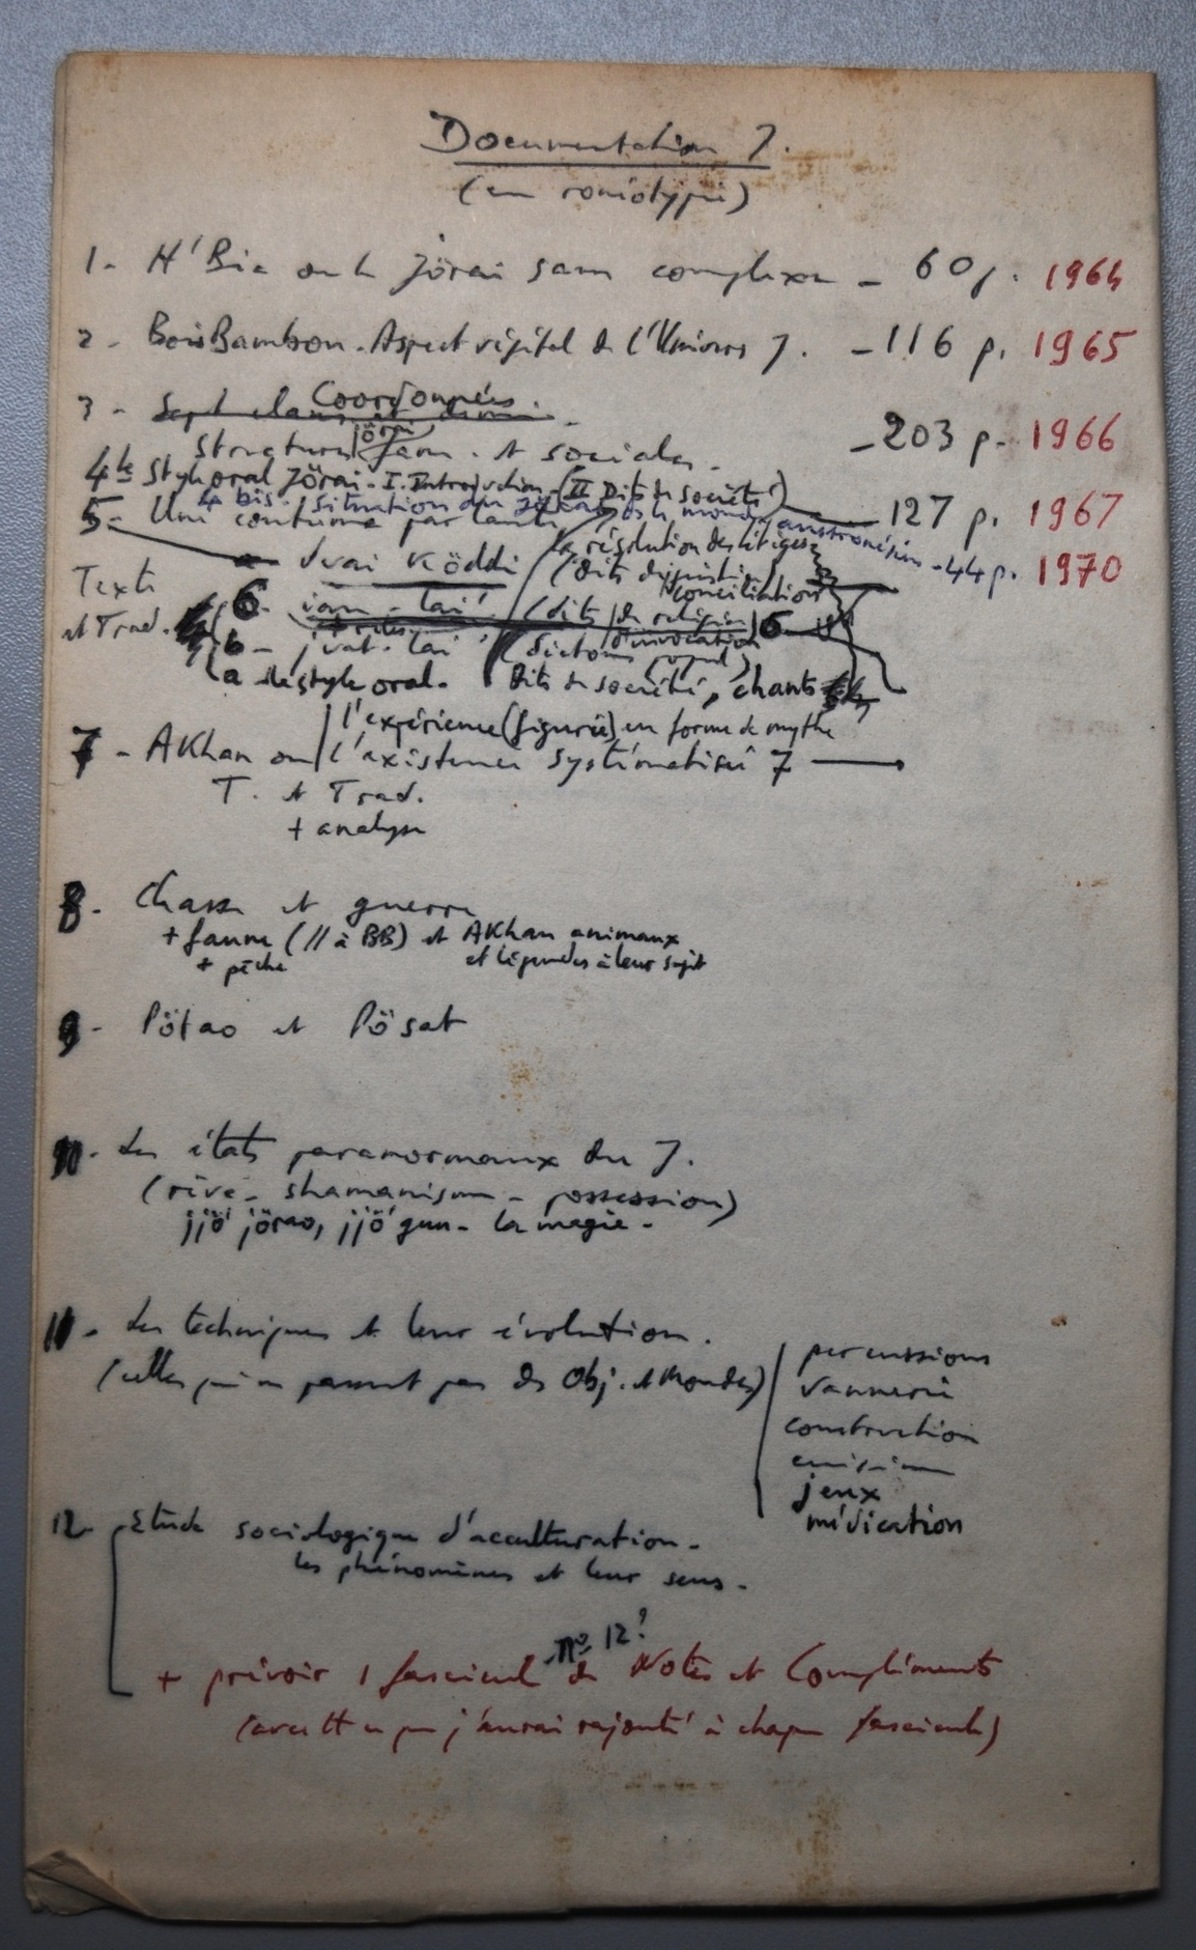 Documentation J.
(en ronéotypie)
1- H'Bia ou le Jörai sans complexe - 60 p. 1964
2- Bois Bambou. Aspect végétal de l'Univers J. - 116 p. 1965
3- Sept clans
Coordonnées
Structures jörai fam. et sociales - 203 p. 1966
4 Le Style oral Jörai - I. Introduction - (II Dits de société) 127 p. 1967
4 bis. Situation du Jörai ds le monde austronésien - 44 p. 1970
5- Une coutume parlante
la résolution des litiges
Texte
et Trad.
Jvai Köddi (dits de justice
conciliation)
6 (dits de religion) 6
d'invocation
b - jvat-lai (dictons popul)
a - le style oral. Dits de société, chants
l'expérience (figurée) en forme de mythe
7- AKhan ou l'existence systématisée J
T. et Trad.
+ analyse
8- Chasse et guerre
+ faune (// à BB) et AKhan animaux
+ pêche et légendes à leur sujet
9- Pötao et Pösat
10- Les états paranormaux du J.
(rêve - shamanisme - possession)
jjö jörao, jjö gun - la magie -
11- Les techniques et leur évolution.
(celles qui ne passent pas ds Obj. et Mondes)
percussions
vannerie
construction
cuisine
jeux
médication
12- Etude sociologique d'acculturation -
les phénomènes et leur sens -
n° 12?
+ prévoir 1 fascicule de Notes et Compléments
(avec tt ce que j'aurai rajouté à chaque fascicule)